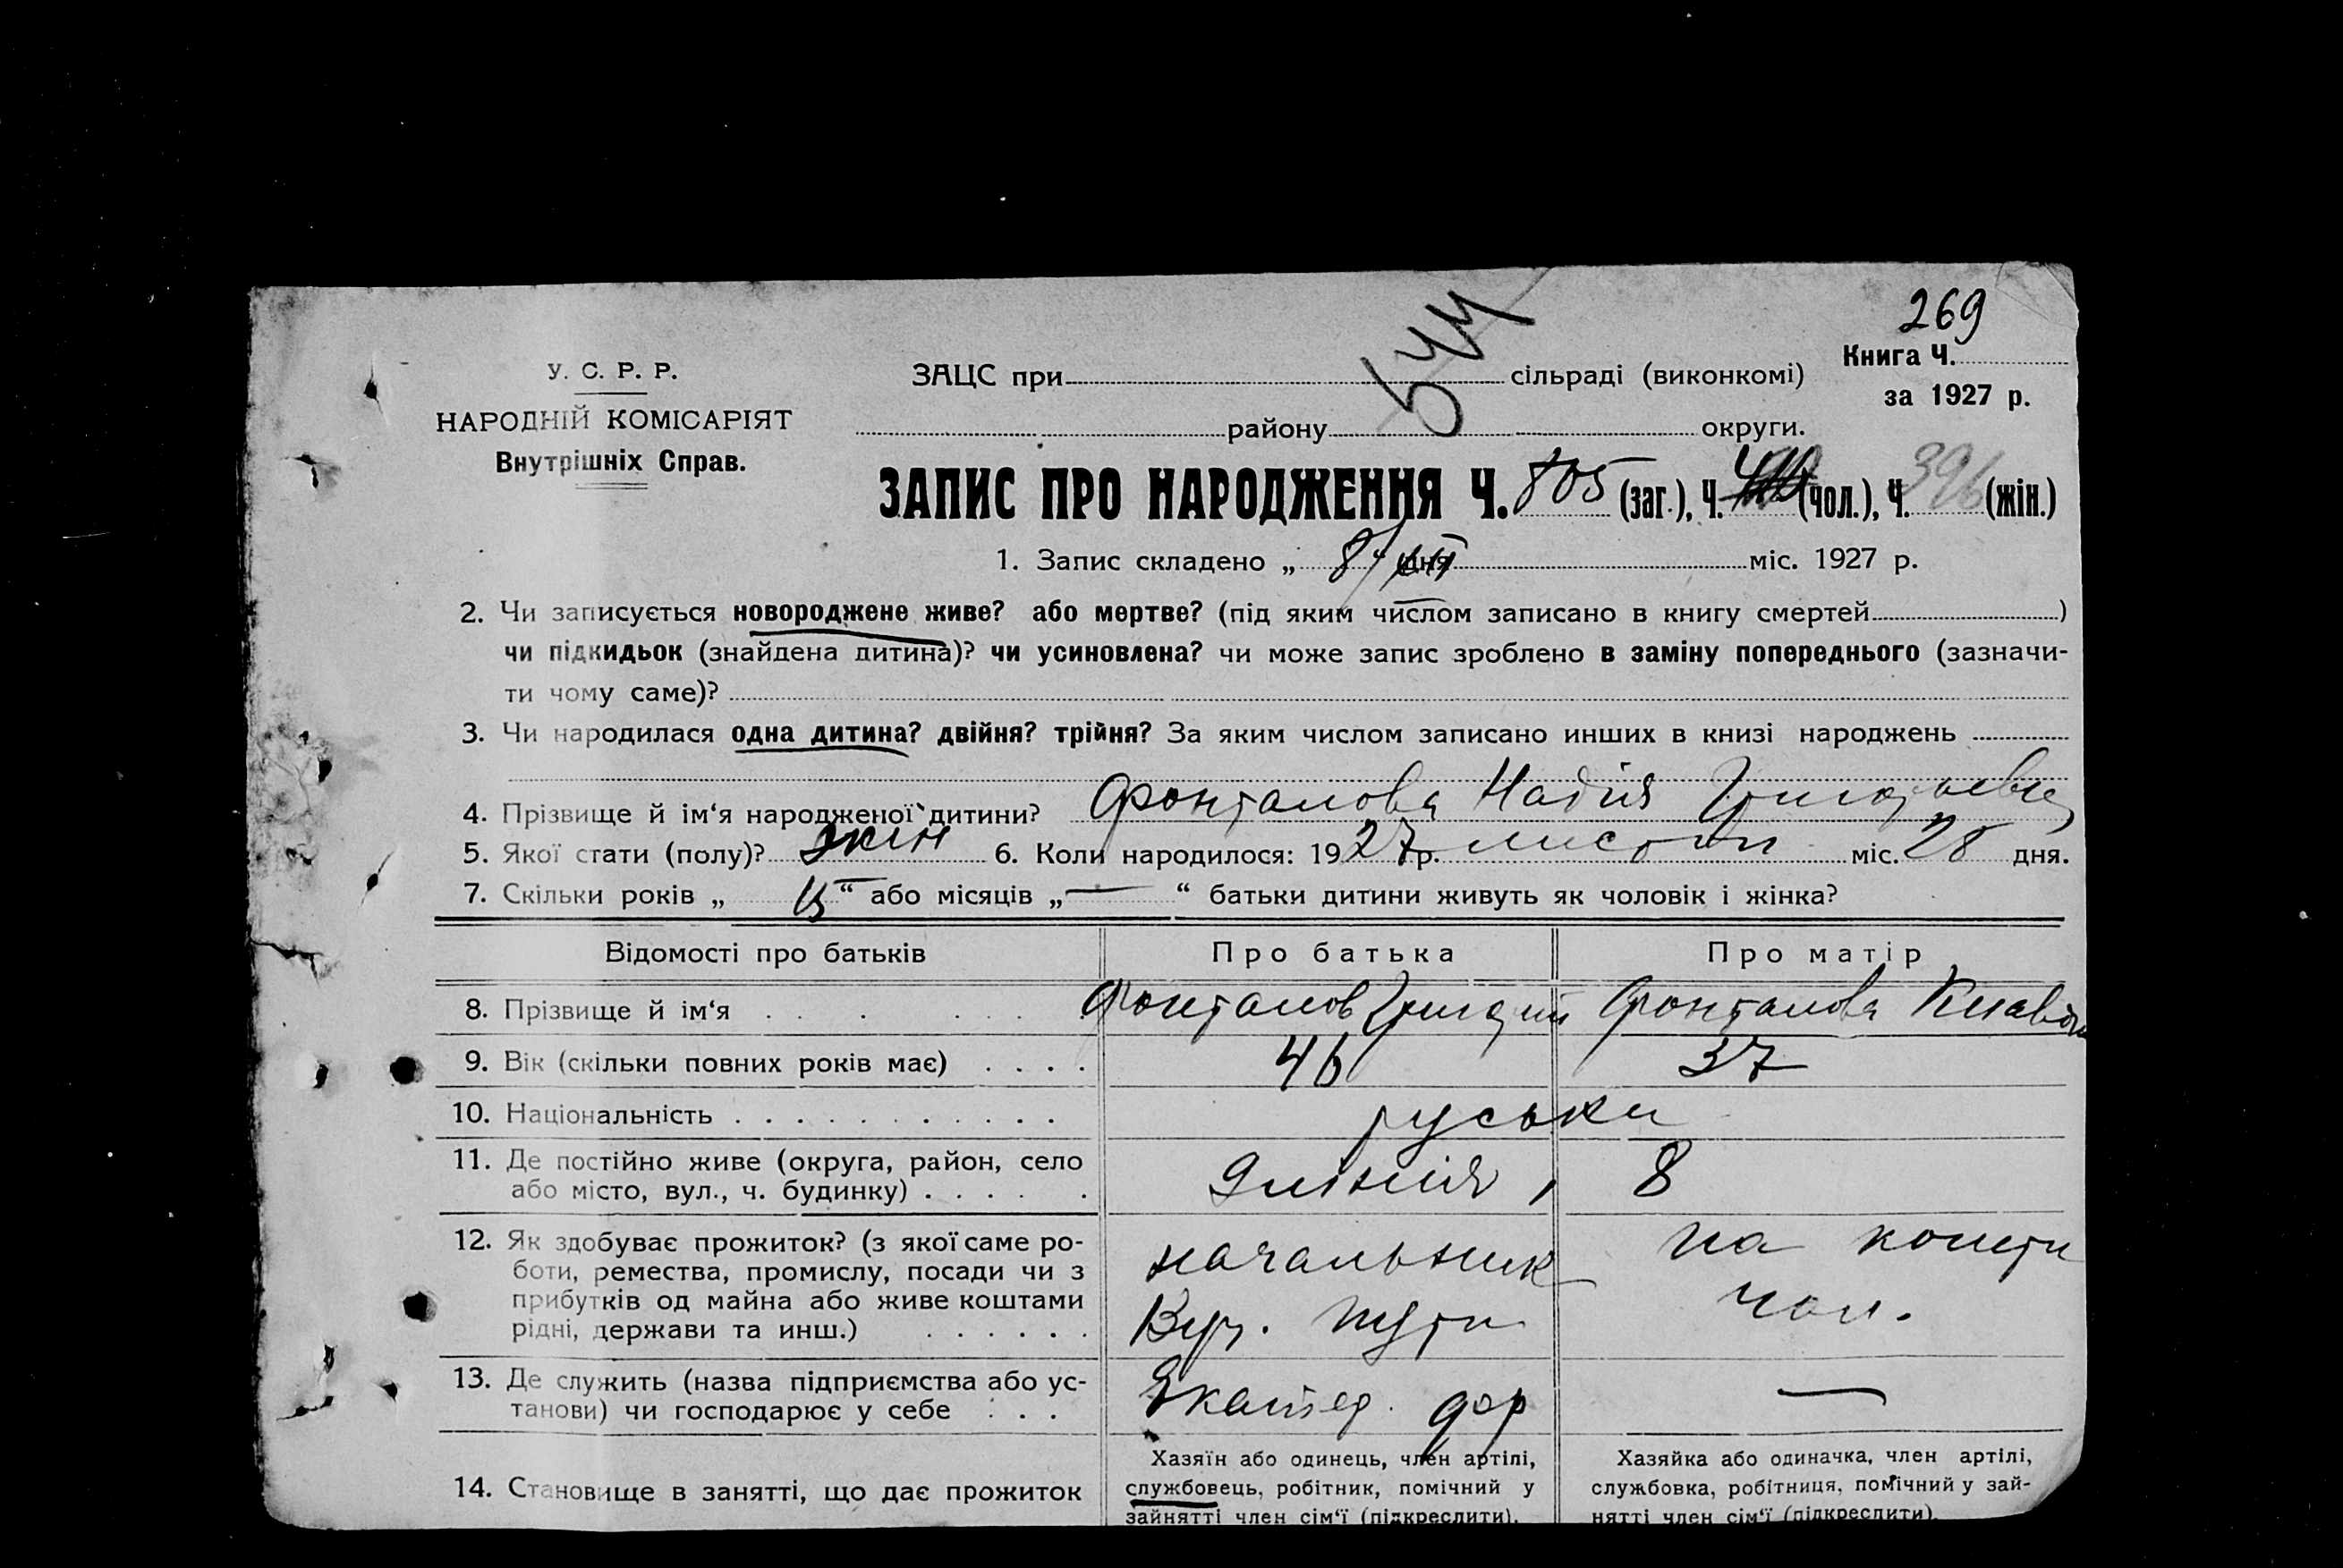 269
544
У. С. Р. Р.
НАРОДНІЙ КОМІСАРІЯТ
Внутрішніх Справ.
ЗАЦС при сільраді (виконкомі)
району округи.
Книга Ч.
за 1927 р.
ЗАПИС ПРО НАРОДЖЕННЯ Ч. 805 (заг.), Ч. (чол.), Ч. 396 (жін.)
1. Запис складено „ 8 “ дня міс. 1927 р.
2. Чи записується новороджене живе? або мертве? (під яким числом записано в книгу смертей )
чи підкидьок (знайдена дитина)? чи усиновлена? чи може запис зроблено в заміну попереднього (зазначи-
ти чому саме)?
3. Чи народилася одна дитина? двійня? трійня? За яким числом записано инших в книзі народжень
4. Прізвище й ім‘я народженої дитини? Фонталова Надія
5. Якої стати (полу)? жін 6. Коли народилося: 1927 р. листоп міс. 28 дня.
7. Скільки років „ “ або місяців „ — “ батьки дитини живуть як чоловік і жінка?
Відомості про батьків Про батька Про матір
8. Прізвище й ім‘я . . . . . . Фонталов Фонталова
9. Вік (скільки повних років має) . . . . 46 37
10. Національність . . . . . . . . . . . руськи
11. Де постійно живе (округа, район, село
або місто, вул., ч. будинку) . . . . . 8
12. Як здобуває прожиток? (з якої саме ро-
боти, ремества, промислу, посади чи з
прибутків од майна або живе коштами
рідні, держави та инш.) . . . . . .
начальник
пути
на кошти
чол.
13. Де служить (назва підприємства або ус-
танови) чи господарює у себе . . .
дор
—
14. Становище в занятті, що дає прожиток
Хазяїн або одинець, член артілі,
службовець, робітник, помічний у
зайнятті член сім‘ї (підкреслити).
Хазяйка або одиначка, член артілі,
службовка, робітниця, помічний у зай-
нятті член сім‘ї (підкреслити).